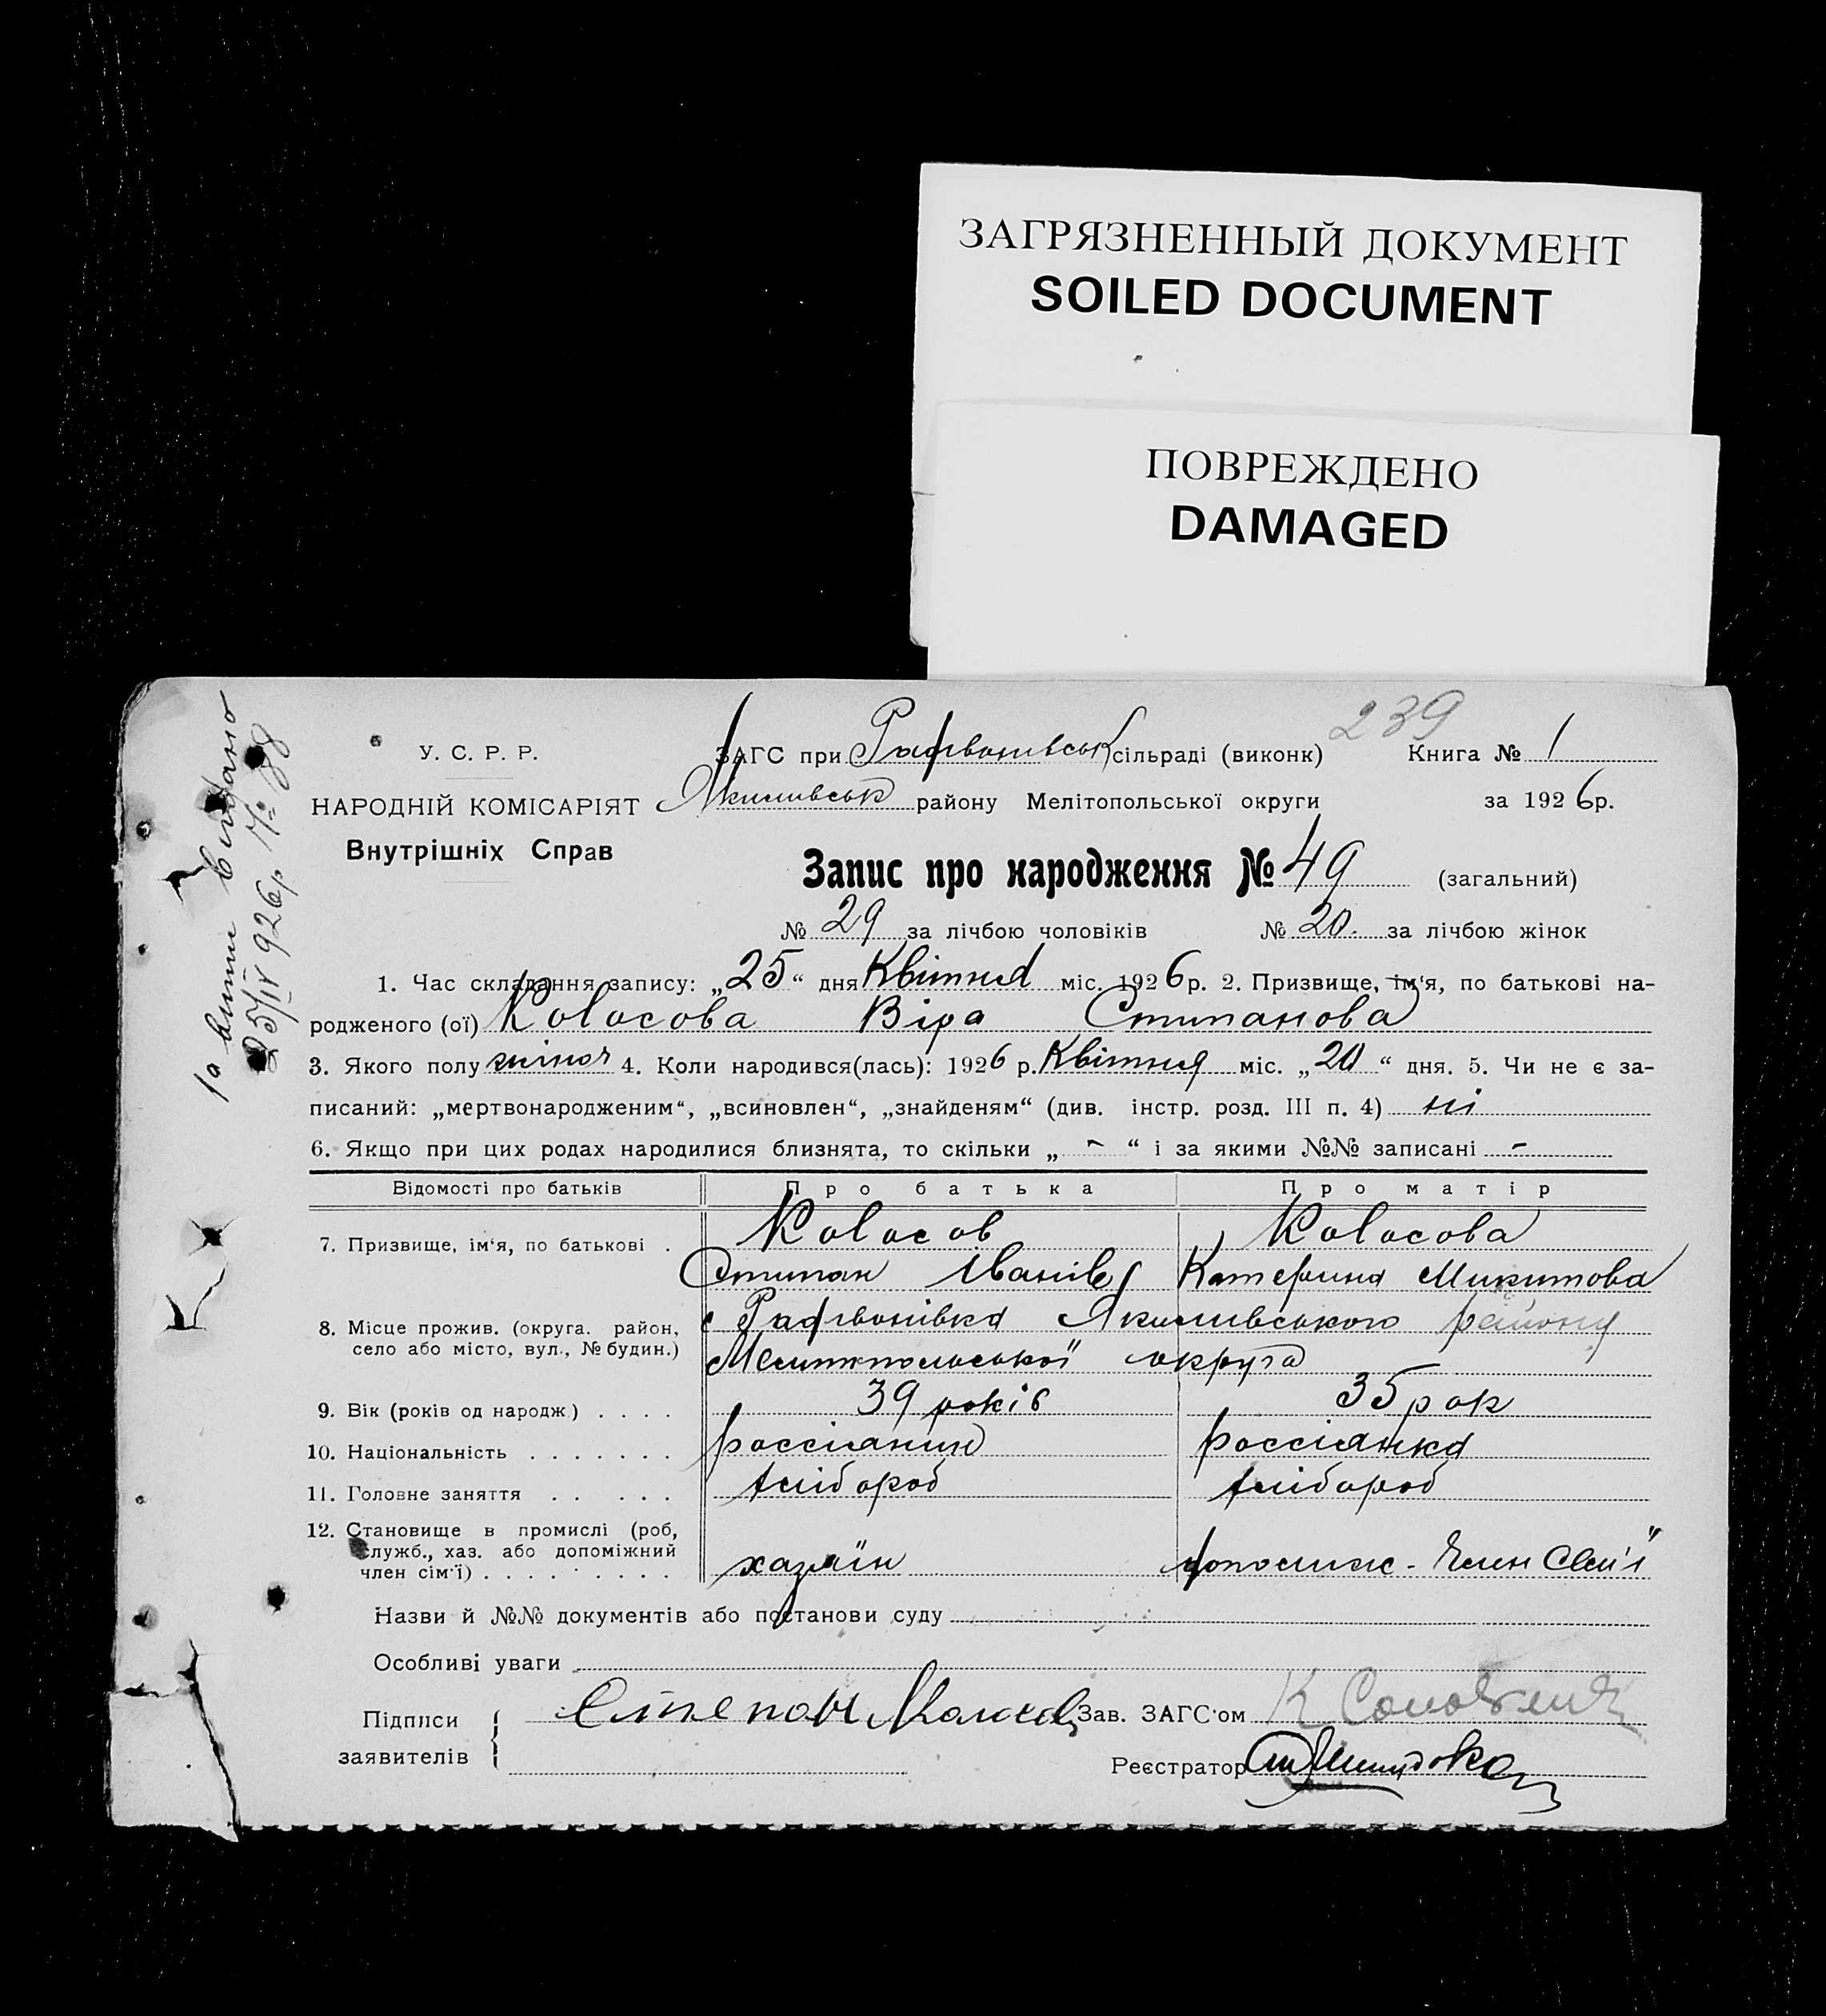 ЗАГРЯЗНЕННЫЙ ДОКУМЕНТ
SOILED DOCUMENT
ПОВРЕЖДЕНО
DAMAGED
239
У. С. Р. Р.
ЗАГС при сільраді (виконк) Книга № 1
НАРОДНІЙ КОМІСАРІЯТ Якимивськ району Мелітопольської округи за 1926р.
Внутрішніх Справ
Запис про народження № 49 (загальний)
№ 29 за лічбою чоловіків № 20. за лічбою жінок
1. Час складання запису: „25“ дня Квітня міс. 1926р. 2. Призвище, ім‘я, по батькові на-
родженого (ої) Колосова Віра Стипанова
3. Якого полу жіноч 4. Коли народився(лась): 1926 р. Квітня міс. „20“ дня. 5. Чи не є за-
писаний: „мертвонародженим“, „всиновлен“, „знайденям“ (див. інстр. розд. III п. 4) ні
6. Якщо при цих родах народилися близнята, то скільки „ - “ і за якими №№ записані -
Відомості про батьків Про батька Про матір
7. Призвище, ім‘я, по батькові . Колосов Колосова
Стипан Іванів Катерина Микитова
8. Місце прожив. (округа. район, село або місто, вул., № будин.) с Якимивського району
Мелитпольської округа
9. Вік (років од народж.) . . . . 39 років 35 рок
10. Національність . . . . . . . россіанин россіанка
11. Головне заняття . . . . . хлібороб хлібороб
12. Становище в промислі (роб, служб., хаз. або допоміжний член сім‘ї) . . . . . . . . . . хазяїн допомиж - Член Сем'ї
Назви й №№ документів або постанови суду
Особливі уваги
Підписи заявителів Степан Колосов Зав. ЗАГС‘ом
Реєстратор
витг видано
25/IV 926р № 88